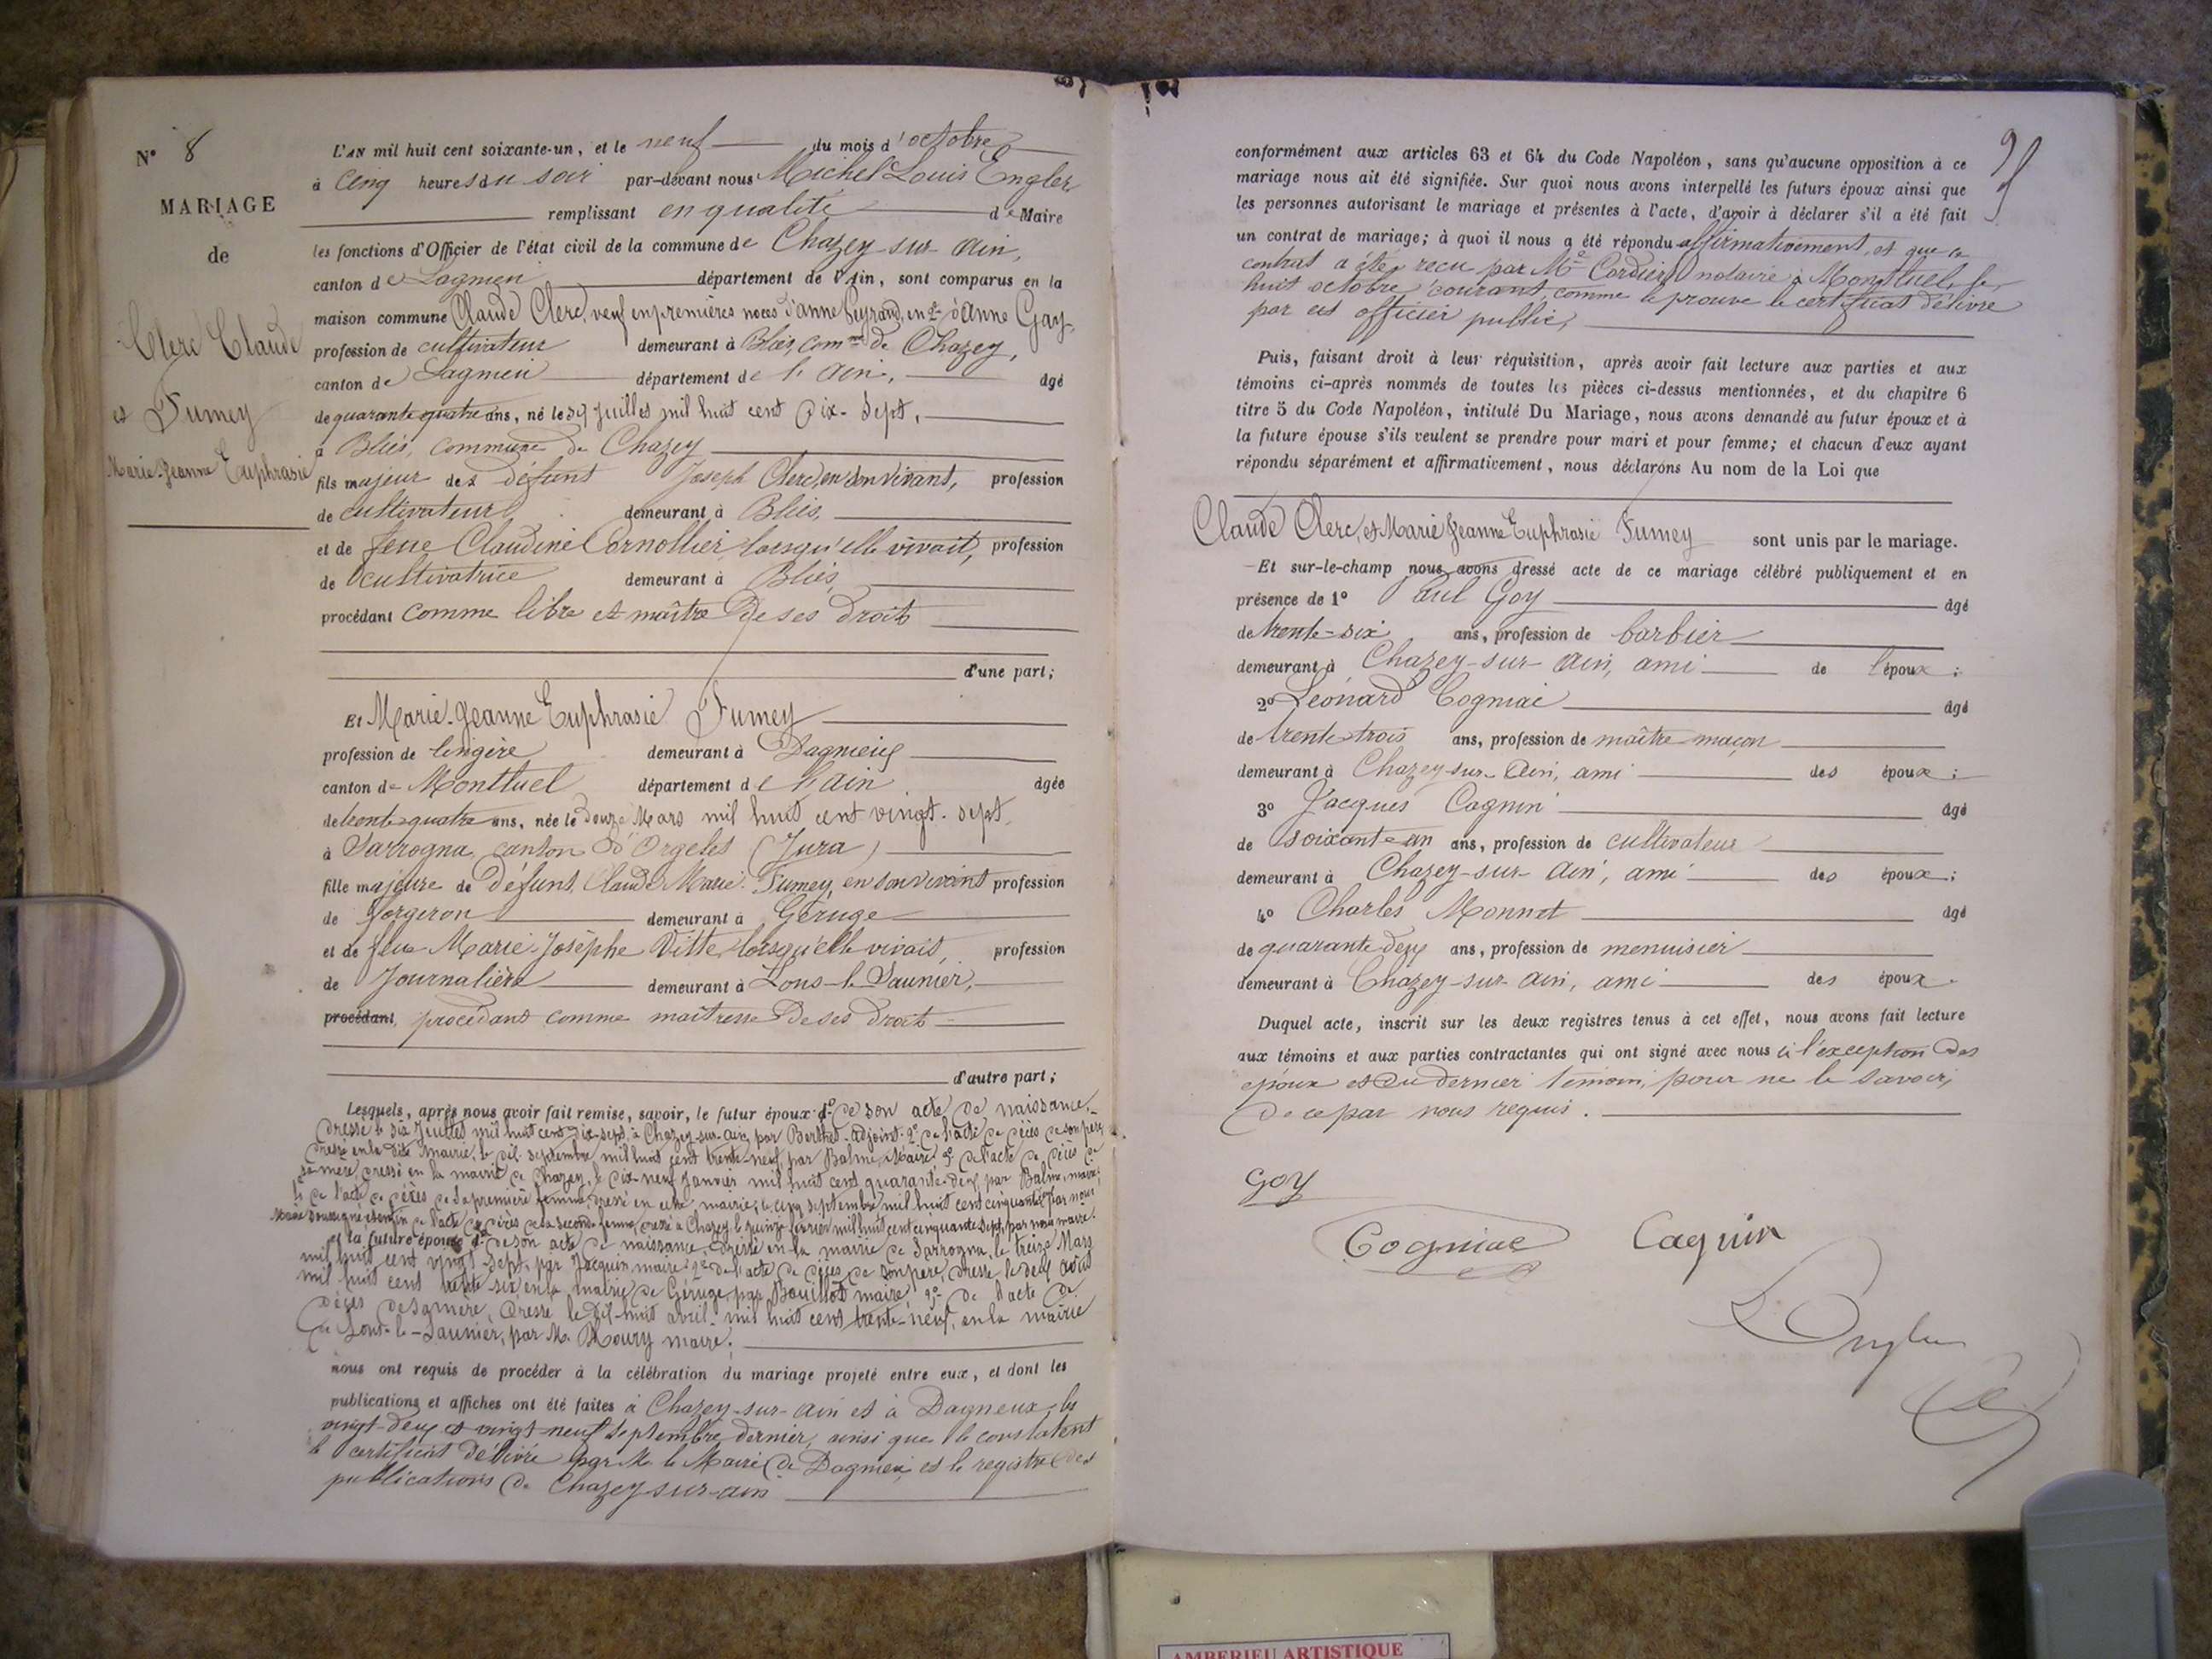 N° 8
MARIAGE
de
Clerc Claude
et Fumey
Marie-Jeanne Euphrasie
L'AN mil huit cent soixante-un, et le neuf du mois d'octobre
à cinq heures du soir par-devant nous Michel Louis Engler
remplissant en qualité de Maire
les fonctions d'Officier de l'état civil de la commune de Chazey-sur-Ain,
canton de Lagnieu département de l'Ain, sont comparus en la
maison commune Claude Clerc, veuf en premières noces d'anne Peyraud, en 2e d'Anne Gay,
profession de cultivateur demeurant à Bliés, comne de Chazey,
canton de Lagnieu département de l'Ain, âgé
de quarante quatre ans, né le Juillet mil huit cent Dix-Sept,
à Bliés, commune de Chazey
fils majeur des défunt Joseph Clerc, en son vivant, profession
de cultivateur demeurant à Bliés,
et de feue Claudine Cornollier, lorsqu'elle vivait, profession
de cultivatrice demeurant à Bliés,
procédant comme libre et maître de ses droits
d'une part;
Et Marie-Jeanne Euphrasie Fumey
profession de lingère demeurant à Dagnieux
canton de Montluel département de l'Ain âgée
de trente-quatre ans, née le Douze Mars mil huit cent vingt-sept,
à Sarrogna, canton d'Orgelet (Jura)
fille majeure de Défunt, Claude Marie Fumey, en son vivant profession
de forgeron demeurant à Géruge
et de feue Marie-Josèphe Vitte, lorsqu'elle vivait, profession
de Journalière demeurant à Lons-le-Saunier,
procédant, procédant comme maitresse de ses droits
d'autre part;
Lesquels, après nous avoir fait remise, savoir, le futur époux 1° de son acte de naissance,
dressé le dix Juillet mil huit cent dix-sept, à Chazey-sur-ain, par Berthet, adjoint. 2° de l'acte de décès de son père
dressé en la dite Mairie, le septembre mil huit cent trente-neuf par Balme, Maire. 3° de l'acte de décès de
sa mère, dressé en la mairie de Chazey, le dix-neuf janvier mil huit cent quarante-deux par Balme, maire;
4° de l'acte de décès de sa première femme dressé en cette mairie, le cinq septembre mil huit cent cinquante par nous
Maire soussigné et enfin de l'acte de décès de sa seconde femme, dressé à Chazey le quinze février mil huit cent cinquante sept, par nous maire.
et la future épouse 1° de son acte de naissance, dressé en la mairie de Sarrogna, le treize Mars
mil huit cent vingt-sept, par Jacquin maire; 2° de l'acte de décès de son père, dressé le deux août
mil huit cent trente-six en la mairie de Géruge, par Bouillod maire; 3° de l'acte de
décès de sa mère, dressé le dix-huit avril mil huit cent trente-neuf, en la mairie
de Lons-le-Saunier, par M. maire;
nous ont requis de procéder à la célébration du mariage projeté entre eux, et dont les
publications et affiches ont été faites à Chazey-sur-Ain et à Dagneux, les
vingt-deux et vingt-neuf Septembre dernier, ainsi que le constatent
le certificat délivré par M. le Maire de Dagnieu, et le registre des
publications de Chazey-sur-ain
conformément aux articles 63 et 64 du Code Napoléon, sans qu'aucune opposition à ce
mariage nous ait été signifiée. Sur quoi nous avons interpellé les futurs époux ainsi que
les personnes autorisant le mariage et présentes à l'acte, d'avoir à déclarer s'il a été fait
un contrat de mariage; à quoi il nous a été répondu affirmativement, et que ce
contrat a été reçu par Me Cordier, notaire à Montluel, le
huit octobre courant, comme le prouve le certificat délivré
par cet officier public,
Puis, faisant droit à leur réquisition, après avoir fait lecture aux parties et aux
témoins ci-après nommés de toutes les pièces ci-dessus mentionnées, et du chapitre 6
titre 5 du Code Napoléon, intitulé Du Mariage, nous avons demandé au futur époux et à
la future épouse s'ils veulent se prendre pour mari et pour femme; et chacun d'eux ayant
répondu séparément et affirmativement, nous déclarons Au nom de la Loi que
Claude Clerc, et Marie Jeanne Euphrasie Fumey sont unis par le mariage.
Et sur-le-champ nous avons dressé acte de ce mariage célébré publiquement et en
présence de 1° Paul Goy âgé
de trente-six ans, profession de barbier
demeurant à Chazey-sur-Ain, ami de l'époux;
2° Léonard Cogniac âgé
de trente-trois ans, profession de maître-maçon
demeurant à Chazey-sur-Ain, ami des époux;
3° Jacques Cagnin âgé
de soixante-un ans, profession de cultivateur
demeurant à Chazey-sur-Ain, ami des époux;
4° Charles Monnet âgé
de quarante-deux ans, profession de menuisier
demeurant à Chazey-sur-Ain, ami des époux.
Duquel acte, inscrit sur les deux registres tenus à cet effet, nous avons fait lecture
aux témoins et aux parties contractantes qui ont signé avec nous à l'exception des
époux et du dernier témoin, pour ne le savoir,
de ce par nous requis.
Goy
Cogniac Cagnin
L. Engler
AMBERIEU ARTISTIQUE